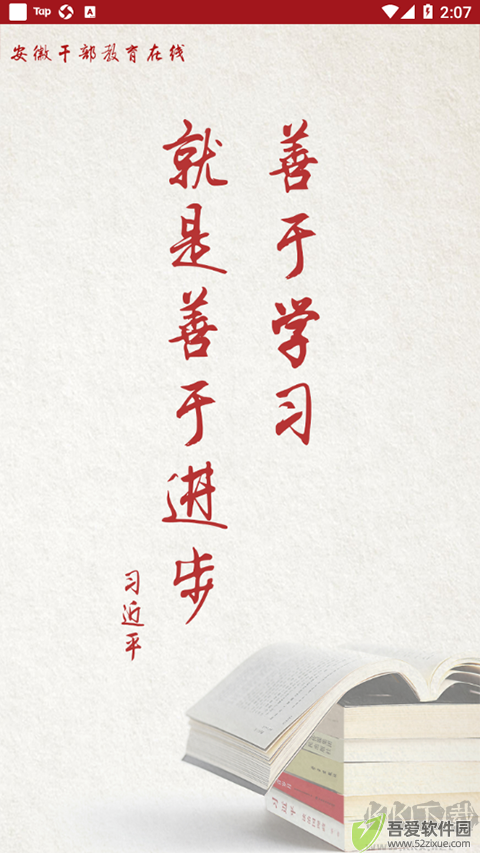 Tap
A
2:07
安徽干部教育在线
善于学习
就是善于进步
习近平
习近平
KK下载
吾爱软件园
www.52zixue.com